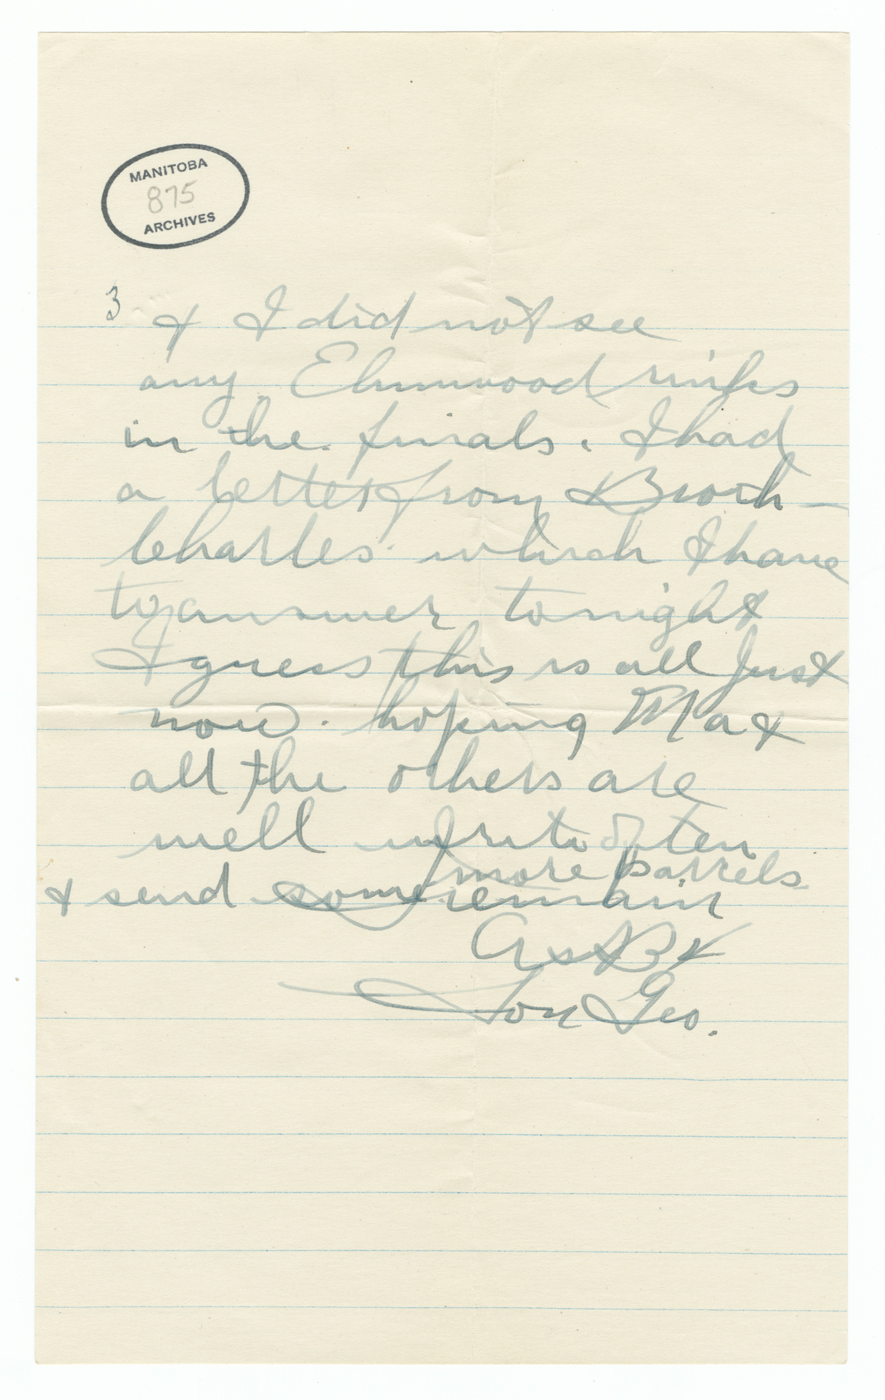 MANITOBA
875
ARCHIVES
3 & I did not see
any Elmwood rinks
in the finals. I had
a letter from Broth-
Charles which I have
to answer tonight
I guess this is all Just
now. hoping Ma &
all the others are
well write often
more parcels
& send some remain
As B 4
Son Geo.